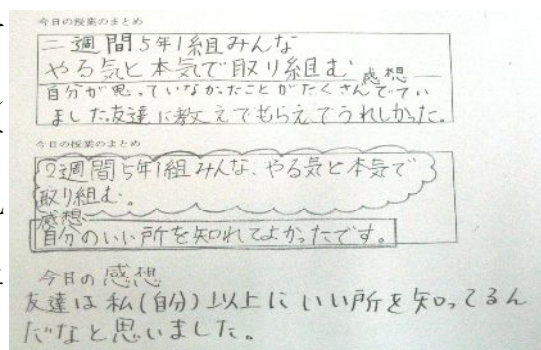 今日の授業のまとめ
二週間5年1組みんな
やる気と本気で取り組む 感想
自分が思っていなかたことがたくさんでてい
ました。友達に教えてもらえてうれしかった。
今日の授業のまとめ
2週間5年1組みんな、やる気と本気で
取り組む。
感想
自分のいい所を知れてよかったです。
今日の感想
友達は私(自分)以上にいい所を知ってるん
だなと思いました。